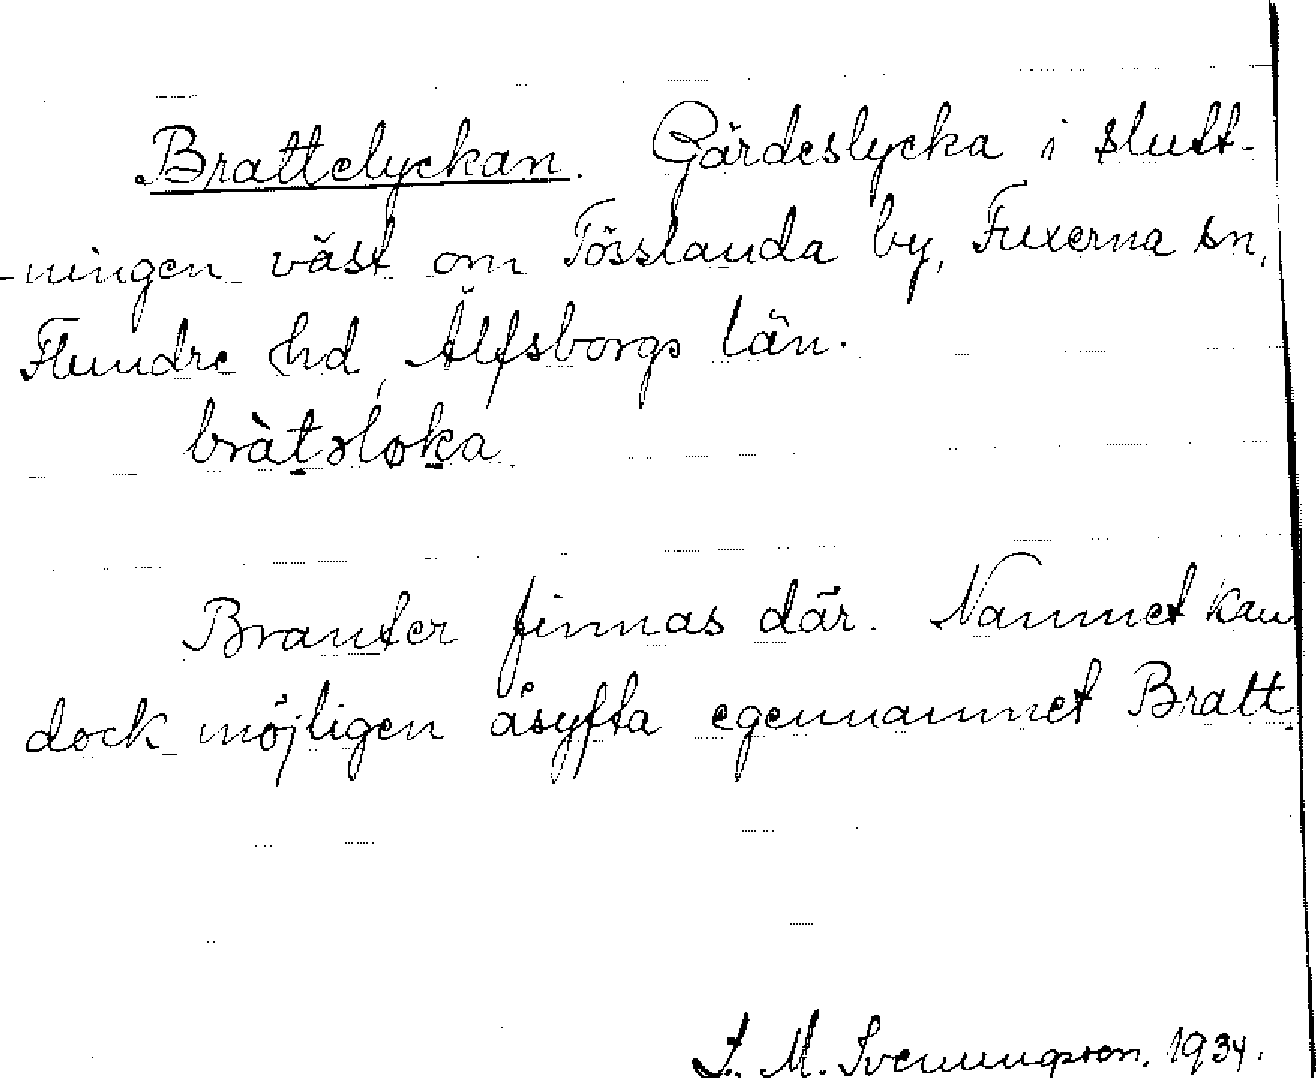 Brattelyckan. Gärdeslycka i slutt-
-ningen väst om Tösslanda by, Fuxerna sn,
Flundre hd, Älfsborgs län.
bràtəløka
Branter finnas där. Namnet kan
dock möjligen åsyfta egennamnet Bratt.
J. M. Svenungsson. 1934.